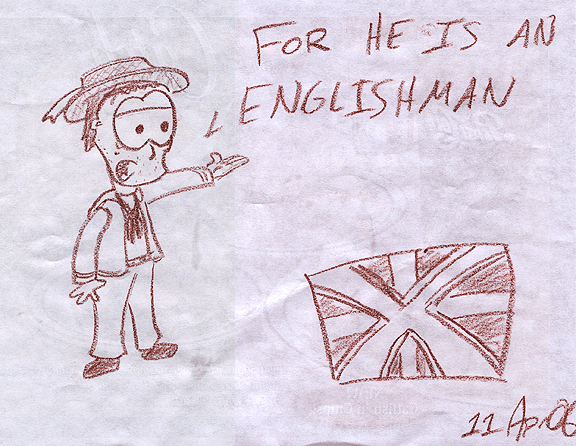 FOR HE IS AN
ENGLISHMAN
11 Apr 06